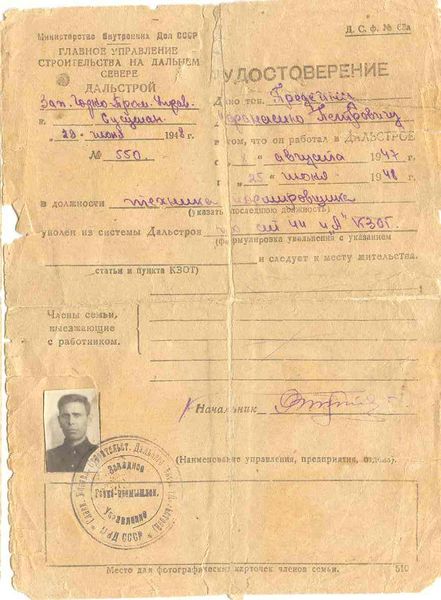 Д. С. ф. № 62а
Министерство Внутренних Дел СССР
ГЛАВНОЕ УПРАВЛЕНИЕ
СТРОИТЕЛЬСТВА НА ДАЛЬНЕМ
СЕВЕРЕ
ДАЛЬСТРОЙ
Зап. Горно-Пром. Управ.
Сусуман
1948 г.
№ 550
УДОСТОВЕРЕНИЕ
Дано тов.
Афанасию Петровичу
в том, что он работал в ДАЛЬСТРОЕ
с августа 1947
25 июня 1948 г.
в должности техника
(указать последнюю должность)
уволен из системы Дальстроя КЗОТ
(Формулировка увольнения с указанием
и следует к месту жительства.
статьи и пункта КЗОТ)
Члены семьи,
выезжающие
с работником.
Начальник
(Наименование управления, предприятия, отдела)
Западное
Горно-промышлен.
Управление
МВД СССР
Место для фотографических карточек членов семьи.
510